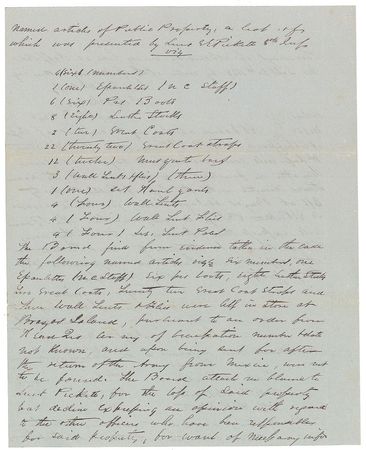 named articles of Public Property, a list of
which was presented by Lieut Pickett 8th Inf
viz
6 (six) (numbers)
1 (one) Epaulettes (N C Staff)
6 (six) Prs Boots
8 (eight) Leather Stocks
2 (two) Great Coats
22 (twenty two) Great Coat straps
12 (twelve) Musquito bars
3 (three)
1 (one) set Hand
4 (Four) Wall Tents
4 (Four) Wall Tent Flies
4 (Four) Sets Tent Poles
The Board find from evidence taken in the case
the following named articles viz Six numbers, one
Epaulettes (N C Staff) Six prs boots, eight Leather Stocks
Two Great Coats, Twenty two Great Coat Straps and
Wall Tents flies were left in store at
Brazos Island, pursuant to an order from
Head Qrs Army of Occupation number & date
not known, and upon being sent for after
the return of the Army from Mexico, was not
to be found. The Board attach no blame to
Lieut Pickett, for the loss of said property
but decline expressing an opinion with regard
to the other officers who have been responsible
for said Property, for want of necessary infor